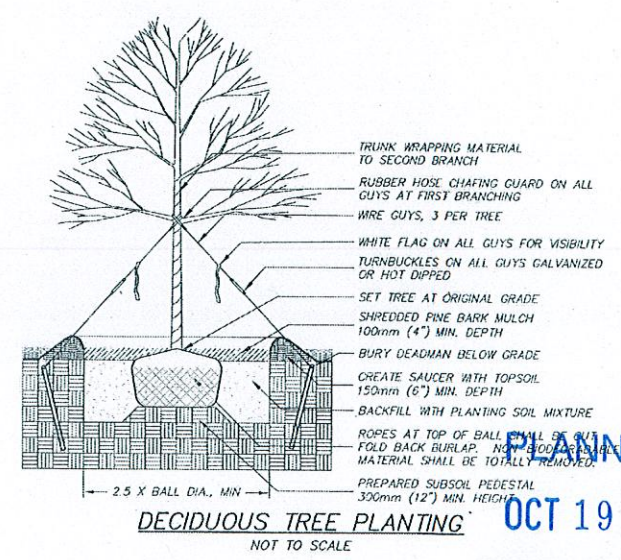 TRUNK WRAPPING MATERIAL
TO SECOND BRANCH
RUBBER HOSE CHAFING GUARD ON ALL
GUYS AT FIRST BRANCHING
WIRE GUYS, 3 PER TREE
WHITE FLAG ON ALL GUYS FOR VISIBILITY
TURNBUCKLES ON ALL GUYS GALVANIZED
OR HOT DIPPED
SET TREE AT ORIGINAL GRADE
SHREDDED PINE BARK MULCH
100mm (4") MIN. DEPTH
BURY DEADMAN BELOW GRADE
CREATE SAUCER WITH TOPSOIL
150mm (6") MIN. DEPTH
BACKFILL WITH PLANTING SOIL MIXTURE
ROPES AT TOP OF BALL SHALL BE CUT
FOLD BACK BURLAP. NON BIODEGRADABLE
MATERIAL SHALL BE TOTALLY REMOVED.
PLANN
PREPARED SUBSOIL PEDESTAL
300mm (12") MIN. HEIGHT
2.5 X BALL DIA., MIN
OCT 19
DECIDUOUS TREE PLANTING
NOT TO SCALE